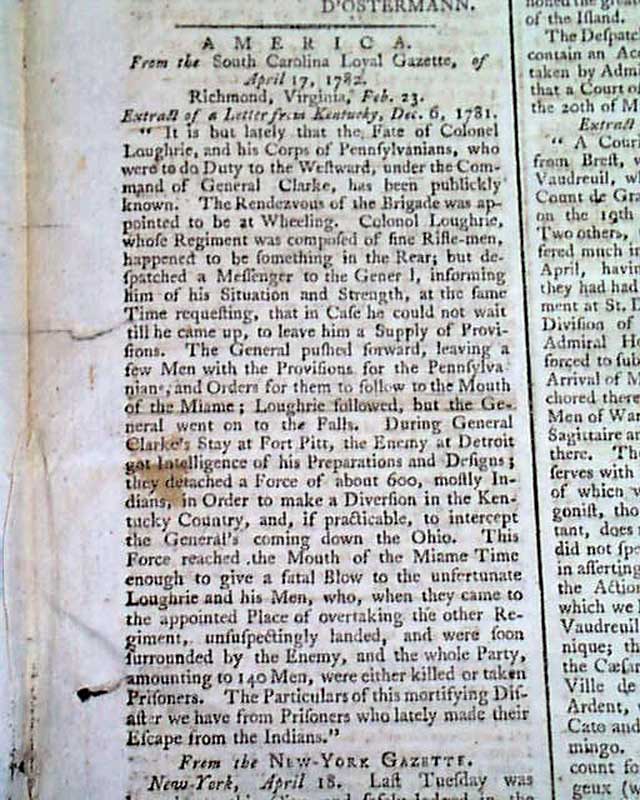 D'OSTERMANN.
AMERICA.
From the South Carolina Loyal Gazette, of
April 17, 1782.
Richmond, Virginia, Feb. 23.
Extract of a Letter from Kentucky, Dec. 6, 1781.
" It is but lately that the Fate of Colonel
Loughrie, and his Corps of Pennſylvanians, who
were to do Duty to the Weſtward, under the Com-
mand of General Clarke, has been publickly
known. The Rendezvous of the Brigade was ap-
pointed to be at Wheeling. Colonol Loughrie,
whoſe Regiment was compoſed of fine Rifle-men,
happened to be ſomething in the Rear; but de-
ſpatched a Meſſenger to the Gener l, informing
him of his Situation and Strength, at the ſame
Time requeſting, that in Caſe he could not wait
till he came up, to leave him a Supply of Provi-
ſions. The General puſhed forward, leaving a
few Men with the Proviſions for the Pennſylva
nians, and Orders for them to follow to the Mouth
of the Miame; Loughrie followed, but the Ge-
neral went on to the Falls. During General
Clarke's Stay at Fort Pitt, the Enemy at Detroit
got Intelligence of his Preparations and Deſigns;
they detached a Force of about 600, moſtly In-
dians, in Order to make a Diverſion in the Ken-
tucky Country, and, if practicable, to intercept
the General's coming down the Ohio. This
Force reached the Mouth of the Miame Time
enough to give a fatal Blow to the unfortunate
Loughrie and his Men, who, when they came to
the appointed Place of overtaking the other Re-
giment, unſuſpectingly landed, and were ſoon
ſurrounded by the Enemy, and the whole Party,
amounting to 140 Men, were either killed or taken
Priſoners. The Particulars of this mortifying Diſ-
aſter we have from Priſoners who lately made their
Eſcape from the Indians."
From the NEW-YORK GAZETTE.
New-York, April 18. Laſt Tueſday was
of the Iſland.
The Deſpatch
contain an Acc
taken by Adm
that a Court of
the 20th of M
Extract
" A Couri
from Breſt, w
Vaudreuil, wh
Count de Gra
on the 19th
Two others,
fered much in
April, havin
they had had
ment at St. L
Diviſion of
Admiral Ho
forced to ſub
Arrival of M
chored there
Men of War
Sagittaire an
there. The
ſerves with
of which w
goniſt, tho
tant, does n
did not ſpe
in aſſerting
the Action
which we h
Vaudreuil
nique; th
the Cæſar
Ville de
Ardent,
Cato and
mingo.
count fo
geux (w